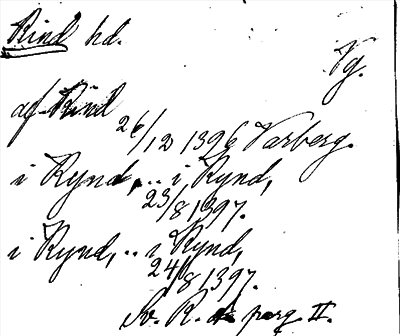 Rind hd.
Vg.
af Rind
26/12 1396 Varberg.
i Rynd, .. i Rynd,
23/8 1397.
i Rynd, .. i Rynd,
24/8 1397.
Sv. R. parg II.